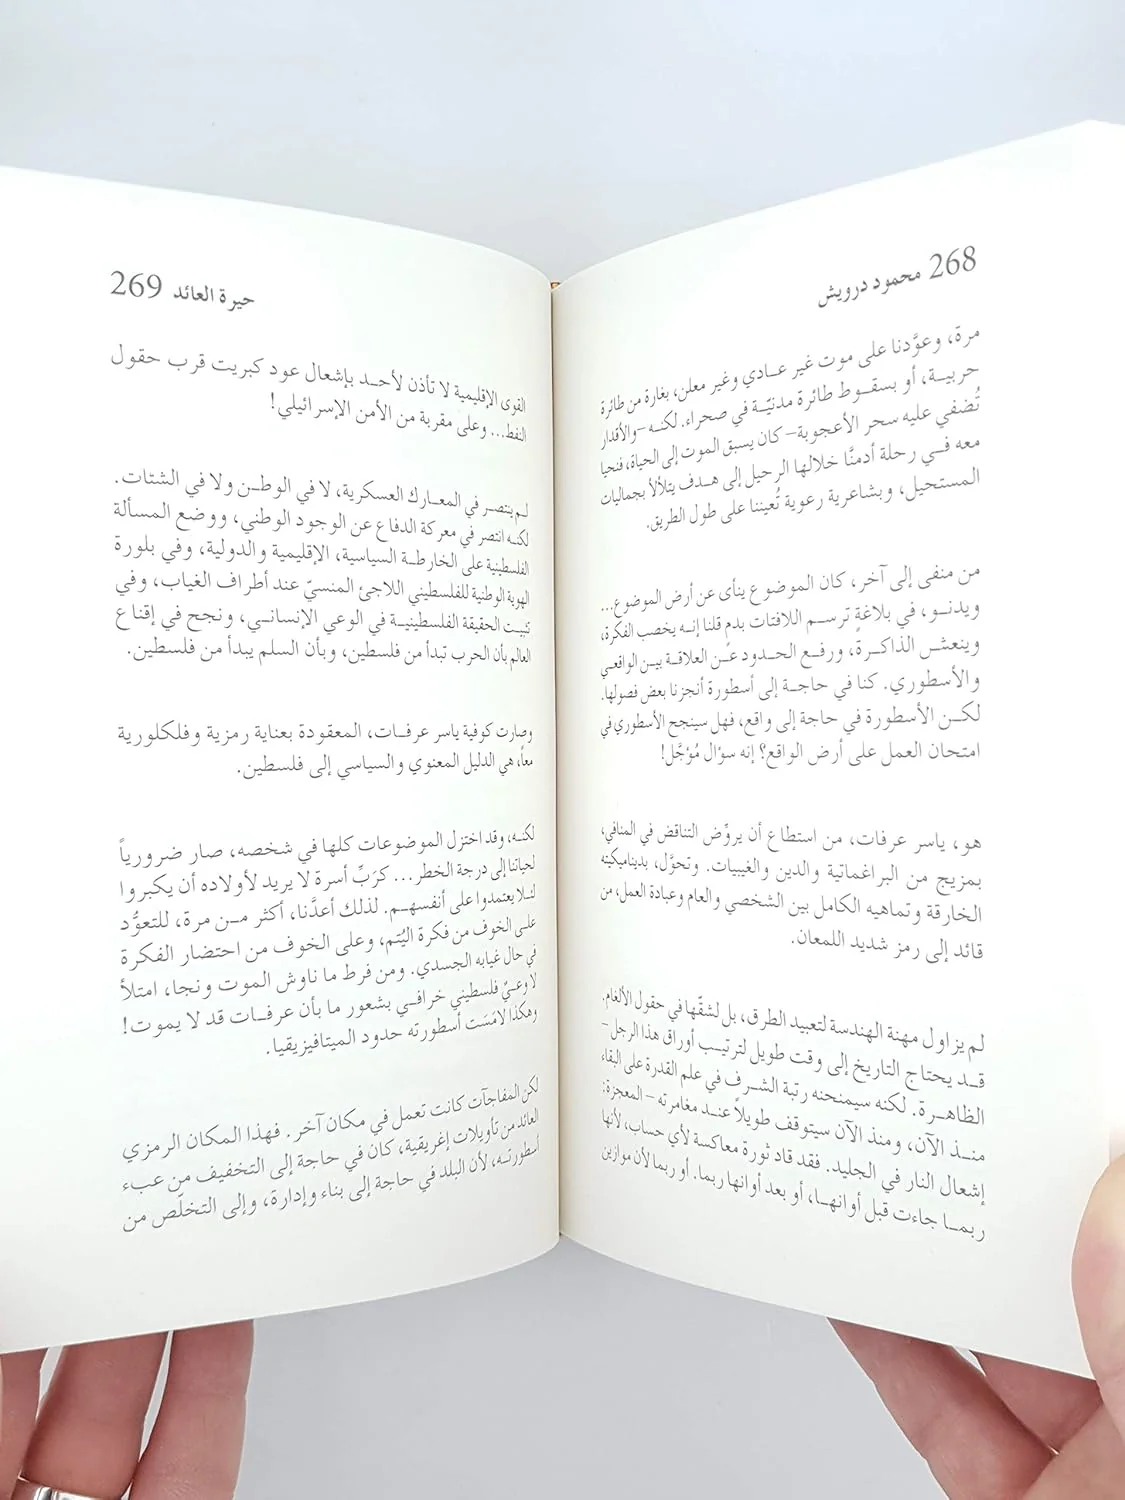 268 محمود درويش
مرة، وعوَّدنا على موت غير عادي وغير معلن، بغارة من طائرة
حربية، أو بسقوط طائرة مدنيّة في صحراء. لكنه -والأقدار
تُضفي عليه سحر الأعجوبة- كان يسبق الموت إلى الحياة، فنحيا
معه في رحلة أدمنَّا خلالها الرحيل إلى هدف يتلألأ بجماليات
المستحيل، وبشاعرية رعوية تُعيننا على طول الطريق.
من منفى إلى آخر، كان الموضوع ينأى عن أرض الموضوع...
ويدنو، في بلاغةٍ ترسم اللافتات بدمٍ قلنا إنه يخصب الفكرة،
وينعش الذاكرة، ورفع الحدود عن العلاقة بين الواقعي
والأسطوري. كنا في حاجة إلى أسطورة أنجزنا بعض فصولها.
لكن الأسطورة في حاجة إلى واقع، فهل سينجح الأسطوري في
امتحان العمل على أرض الواقع؟ إنه سؤال مُؤجَّل!
هو، ياسر عرفات، من استطاع أن يروِّض التناقض في المنافي،
بمزيج من البراغماتية والدين والغيبيات. وتحوَّل، بديناميكيته
الخارقة وتماهيه الكامل بين الشخصي والعام وعبادة العمل، من
قائد إلى رمز شديد اللمعان.
لم يزاول مهنة الهندسة لتعبيد الطرق، بل لشقّها في حقول الألغام.
قد يحتاج التاريخ إلى وقت طويل لترتيب أوراق هذا الرجل -
الظاهرة. لكنه سيمنحنه رتبة الشرف في علم القدرة على البقاء
منذ الآن، ومنذ الآن سيتوقف طويلاً عند مغامرته - المعجزة:
إشعال النار في الجليد. فقد قاد ثورة معاكسة لأي حساب، لأنها
ربما جاءت قبل أوانها، أو بعد أوانها ربما. أو ربما لأن موازين
حيرة العائد 269
القوى الإقليمية لا تأذن لأحد بإشعال عود كبريت قرب حقول
النفط... وعلى مقربة من الأمن الإسرائيلي!
لم ينتصر في المعارك العسكرية، لا في الوطن ولا في الشتات.
لكنه انتصر في معركة الدفاع عن الوجود الوطني، ووضع المسألة
الفلسطينية على الخارطة السياسية، الإقليمية والدولية، وفي بلورة
الهوية الوطنية للفلسطيني اللاجئ المنسيّ عند أطراف الغياب، وفي
تثبيت الحقيقة الفلسطينية في الوعي الإنساني، ونجح في إقناع
العالم بأن الحرب تبدأ من فلسطين، وبأن السلم يبدأ من فلسطين.
وصارت كوفية ياسر عرفات، المعقودة بعناية رمزية وفلكلورية
معاً، هي الدليل المعنوي والسياسي إلى فلسطين.
لكنه، وقد اختزل الموضوعات كلها في شخصه، صار ضرورياً
لحياتنا إلى درجة الخطر... كرَبِّ أسرة لا يريد لأولاده أن يكبروا
لئلا يعتمدوا على أنفسهم. لذلك أعدَّنا، أكثر من مرة، للتعوُّد
على الخوف من فكرة اليُتم، وعلى الخوف من احتضار الفكرة
في حال غيابه الجسدي. ومن فرط ما ناوش الموت ونجا، امتلأ
لا وعيٌ فلسطيني خرافي بشعور ما بأن عرفات قد لا يموت!
وهكذا لامَسَت أسطورته حدود الميتافيزيقيا.
لكن المفاجآت كانت تعمل في مكان آخر. فهذا المكان الرمزي
العائد من تأويلات إغريقية، كان في حاجة إلى التخفيف من عبء
أسطورته، لأن البلد في حاجة إلى بناء وإدارة، وإلى التخلّص من